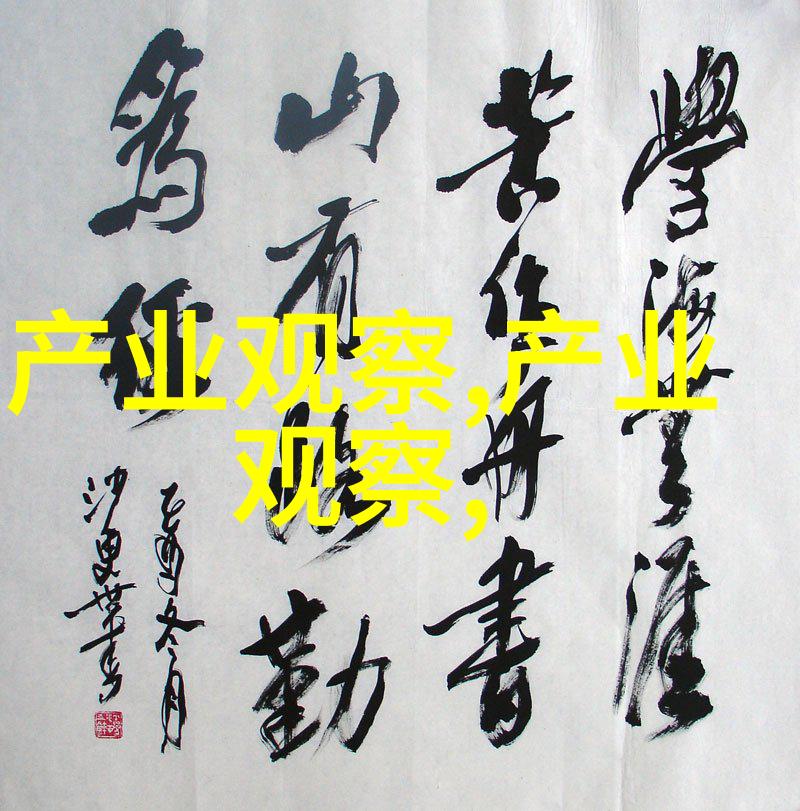 产业观察,产业
观察,
學海无涯
苦作舟書
山有路勤
為徑
乙酉冬月